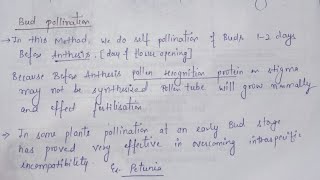 Bud pollination
→ In this Method, we do self pollination of Buds 1-2 days
Before Anthesis. [day of flower opening]
Because Before Anthesis pollen recognition protein in stigma
may not be synthesized Pollen tube will grow normally
and effect fertilisation
→ In some plants pollination at an early Bud stage
has proved very effective in overcoming intraspecific
incompatibility. Ex- Petunia